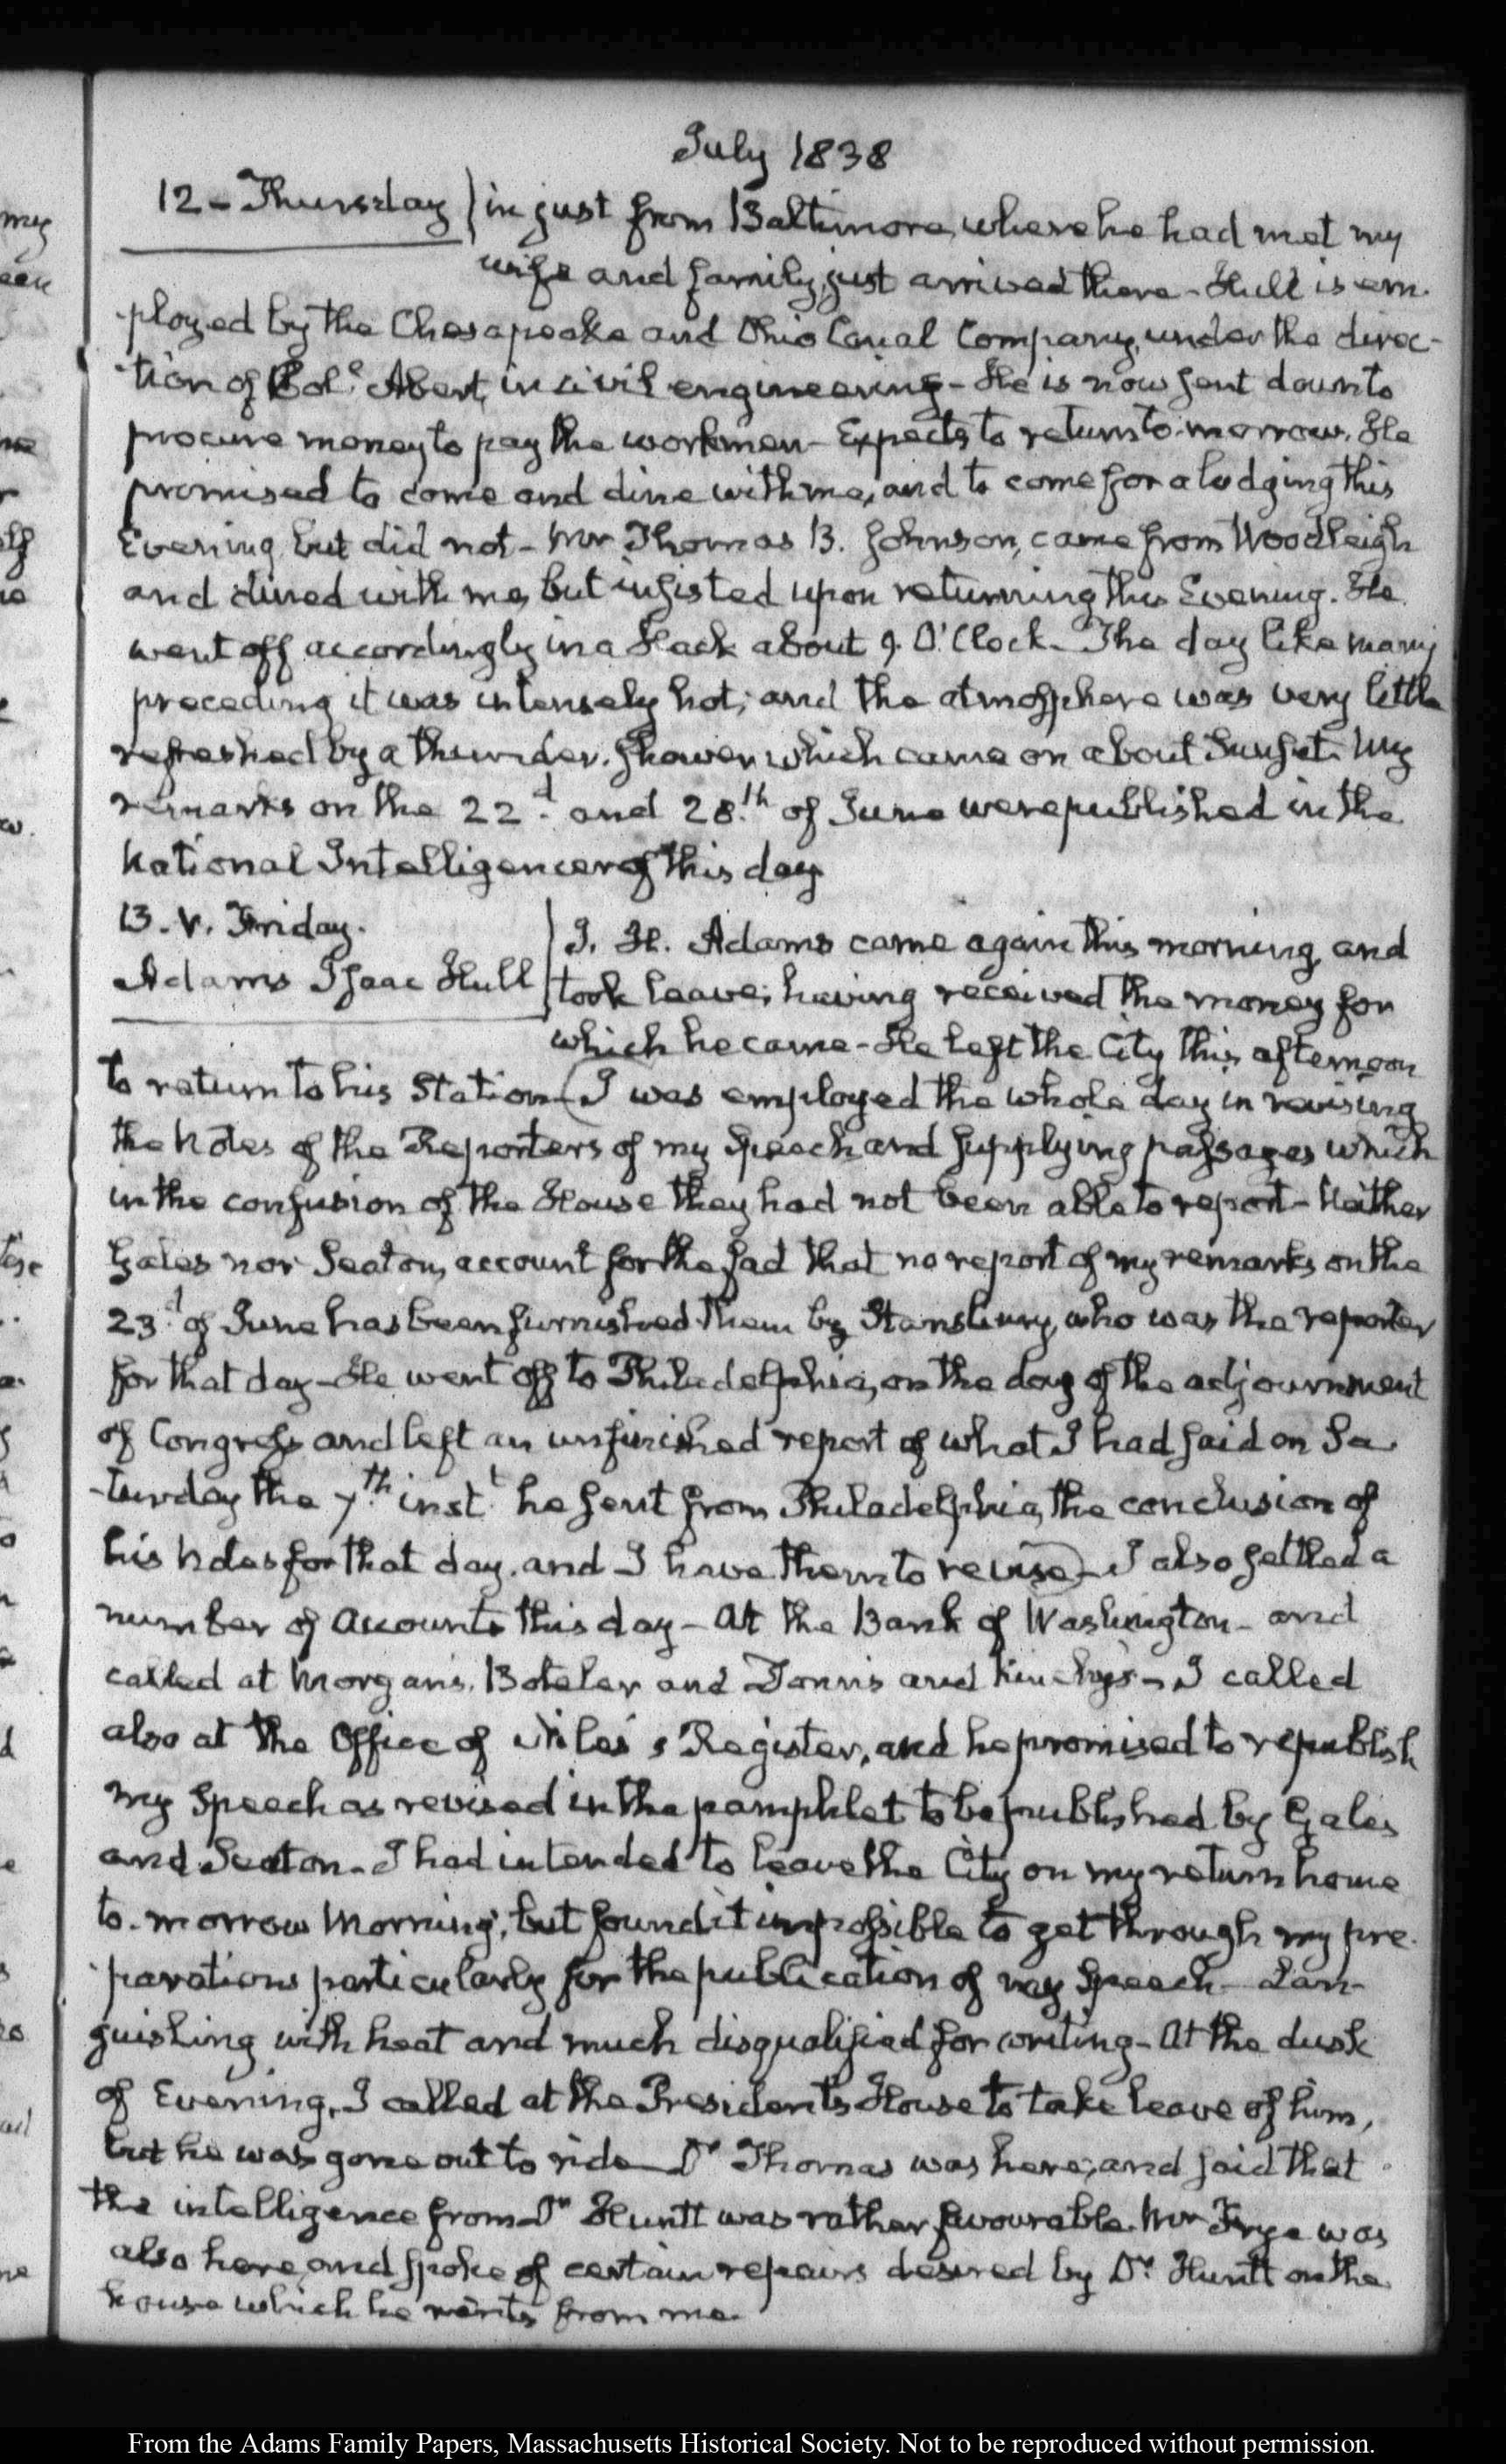 July 1838
12 - Thursday) in just from Baltimore, where he had met my
wife and family, just arrived there - Hull is em-
ployed by the Chesapeake and Ohio Canal Company, under the direc-
tion of Col.ᵉ Abert, in civil engineering - He is now sent down to
procure money to pay the workmen - Expects to return to-morrow. He
promised to come and dine with me, and to come for a lodging this
Evening, but did not - Mr Thomas B. Johnson, came from Woodleigh
and dined with me, but insisted upon returning this Evening. He
went off accordingly in a Hack about 9. O'Clock - The day like many
preceding it was intensely hot; and the atmosphere was very little
refreshed by a thunder-shower, which came on about Sunset. My
remarks on the 22.d and 28.th of June were published in the
National Intelligencer of this day
13. V. Friday.
Adams Isaac Hull
I. H. Adams came again this morning, and
took leave; having received the money for
which he came - He left the City this afternoon
to return to his Station - (I was employed the whole day in revising
the Notes of the Reporters of my Speech and supplying passages which
in the confusion of the House they had not been able to report - Neither
Gales nor Seaton, account for the fact that no report of my remarks on the
23.d of June has been furnished them by Stansbury, who was the reporter
for that day - He went off to Philadelphia, on the day of the adjournment
of Congress and left an unfinished report of what I had said on Sa-
turday the 7.th inst.t he sent from Philadelphia, the conclusion of
his notes for that day, and I have them to revise) - I also settled a
number of Accounts this day - At the Bank of Washington - and
called at Morgan's, Boteler and Donn's and - I called
also at the Office of Niles's Register, and he promised to republish
my Speech as revised in the pamphlet to be published by Gales
and Seaton - I had intended to leave the City on my return home
to-morrow Morning, but found it impossible to get through my pre-
parations particularly for the publication of my Speech - Lan-
guishing with heat and much disqualified for writing - At the dusk
of Evening, I called at the President's House to take leave of him,
but he was gone out to ride - Dr Thomas was here, and said that
the intelligence from Dr Huntt was rather favourable. Mr Frye was
also here, and spoke of certain repairs desired by Dr Huntt on the
house which he rents from me.
From the Adams Family Papers, Massachusetts Historical Society. Not to be reproduced without permission.